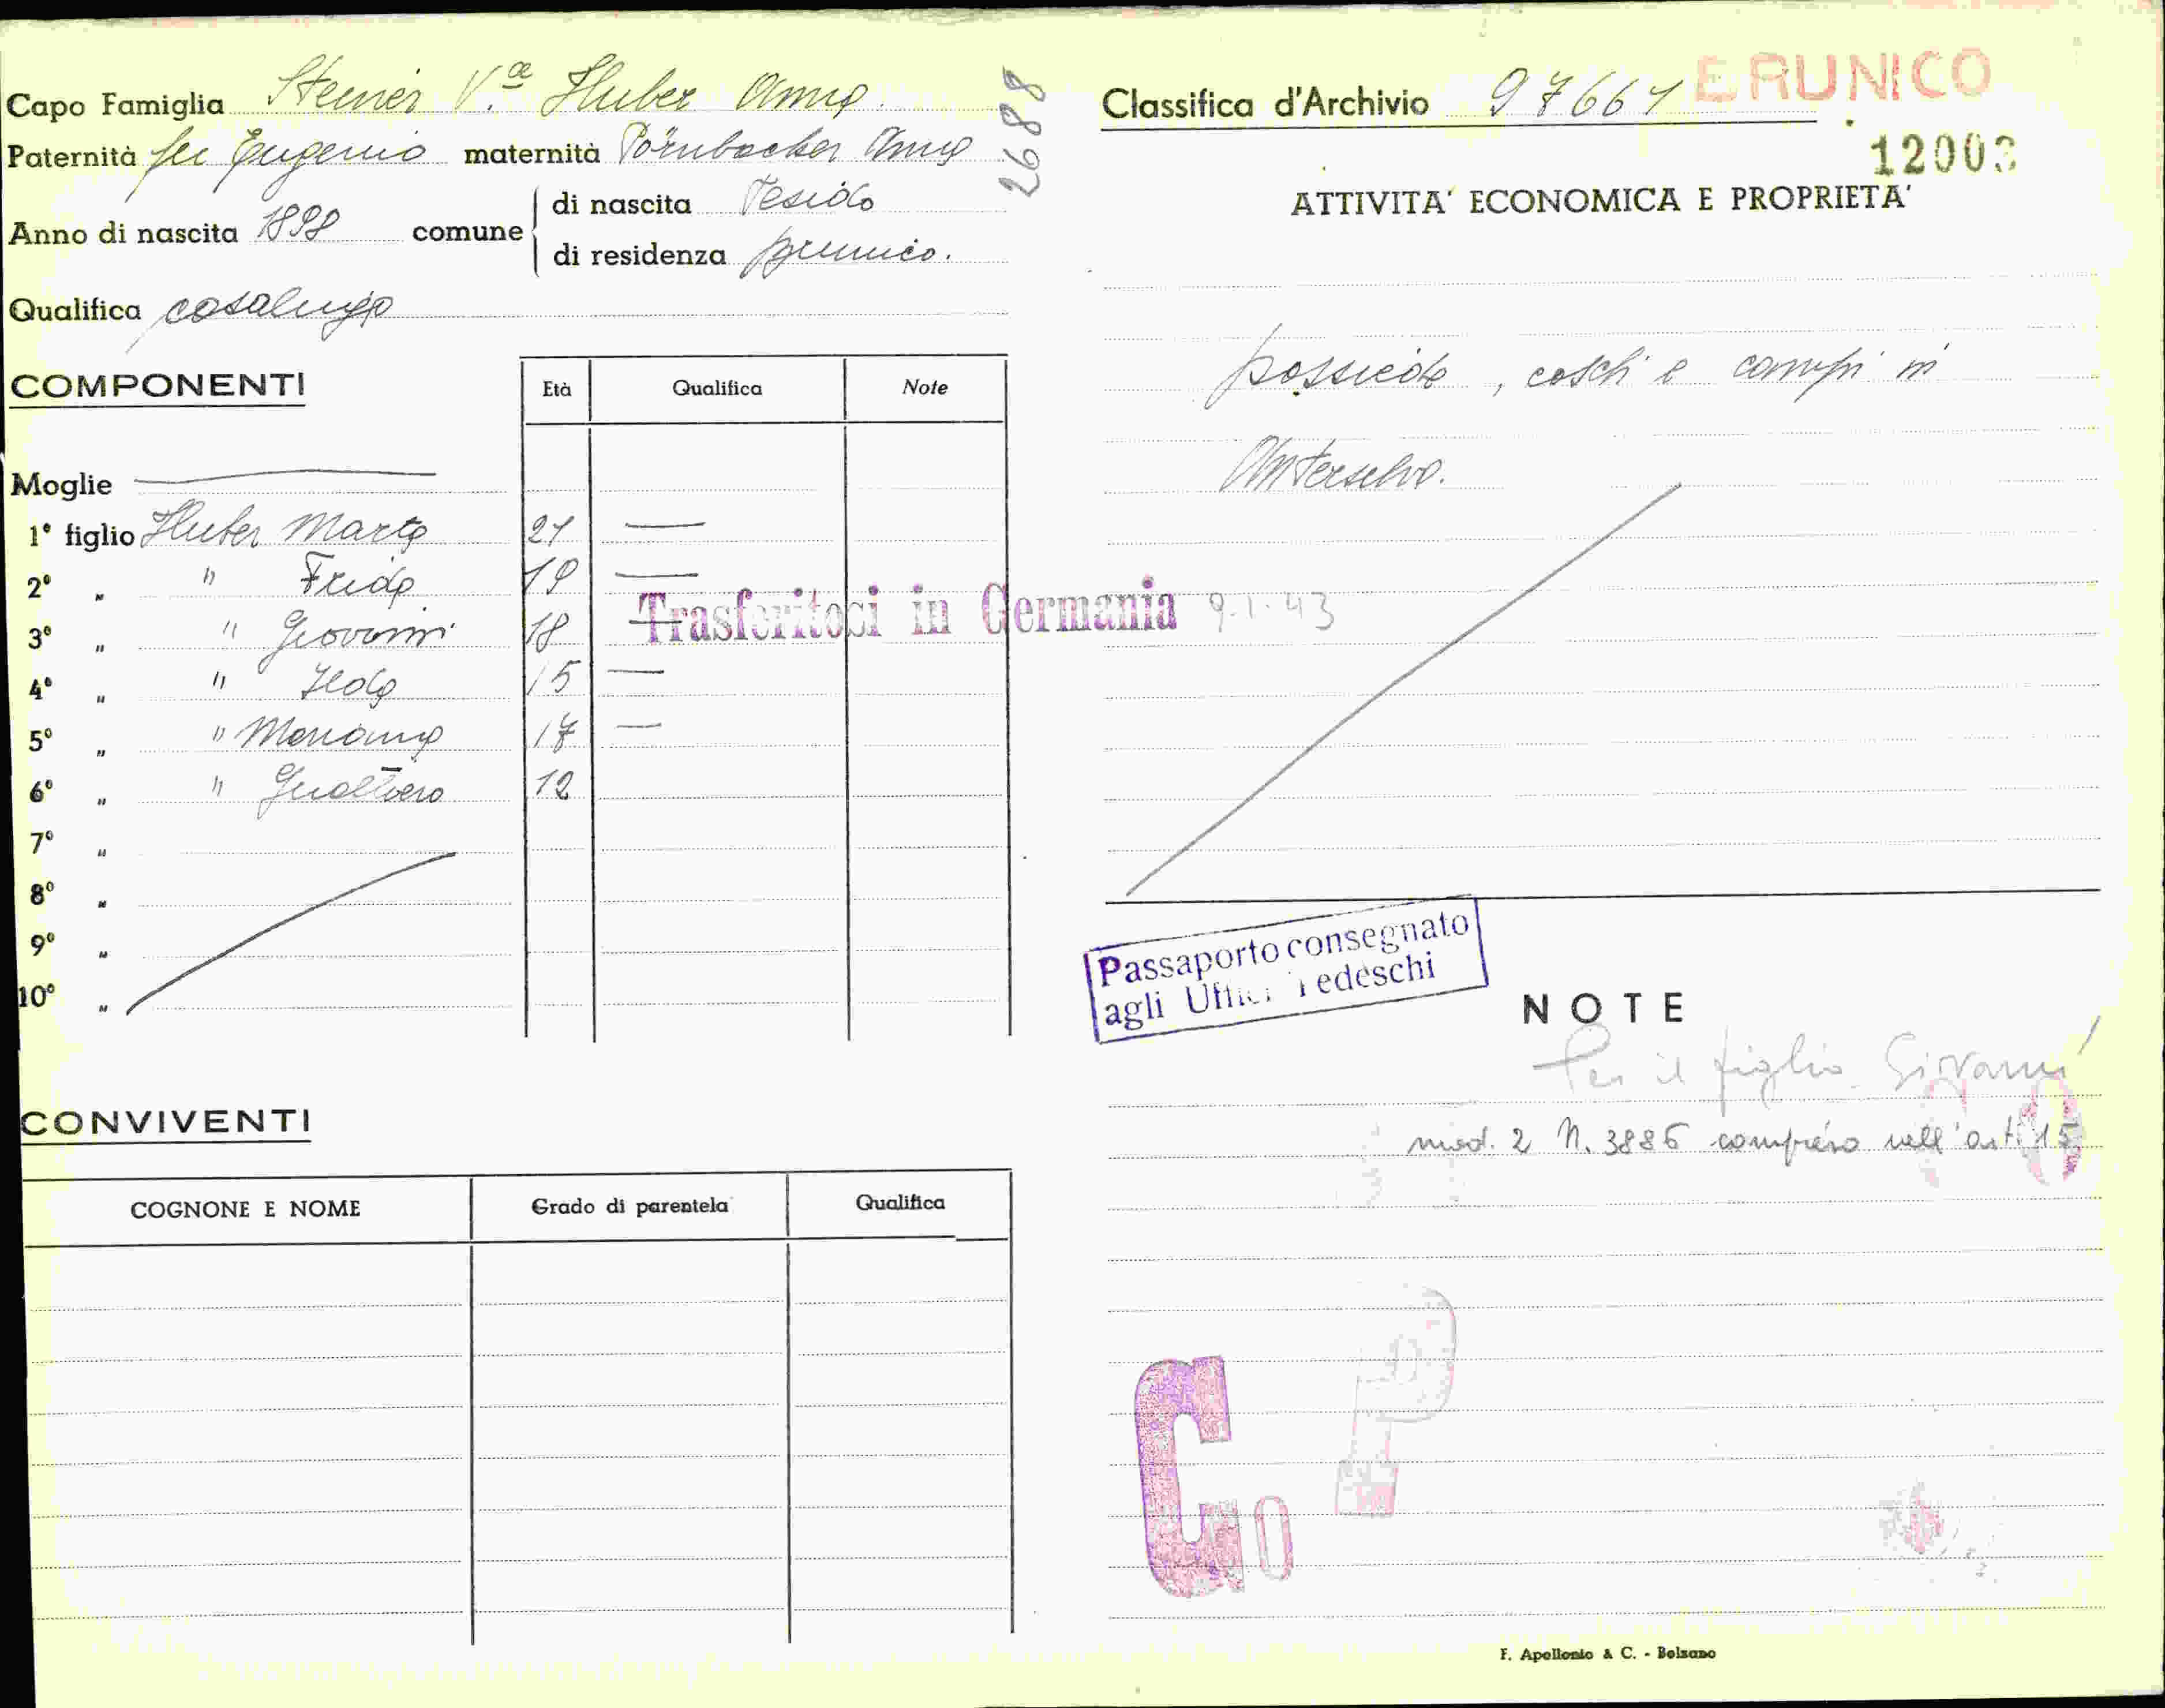 Capo Famiglia Steiner V.a Huber Anna
Paternità fu Eugenio maternità Pörnbacher Anna
2688
Anno di nascita 1898 comune di nascita Tesido
di residenza Brunico.
Qualifica casalinga
COMPONENTI Età Qualifica Note
Moglie —
1° figlio Huber Marta 21 —
2° „ " Frida 19 —
3° „ " Giovanni 18 —
4° „ " Ilda 15 —
5° „ " Marianna 17 —
6° „ " Gualtiero 12
7° „
8° „
9° „
10° „
Trasferitosi in Germania 9-1-43
CONVIVENTI
COGNONE E NOME Grado di parentela Qualifica
Classifica d'Archivio 97661 E RUNICO
12003
ATTIVITA' ECONOMICA E PROPRIETA'
possiede, boschi e campi in
Anterselva.
Passaporto consegnato
agli Uffici Tedeschi
NOTE
Per il figlio Giovanni
mod. 2 N. 3886 compreso nell'art. 15
P
G
10
F. Apollonio & C. - Bolzano